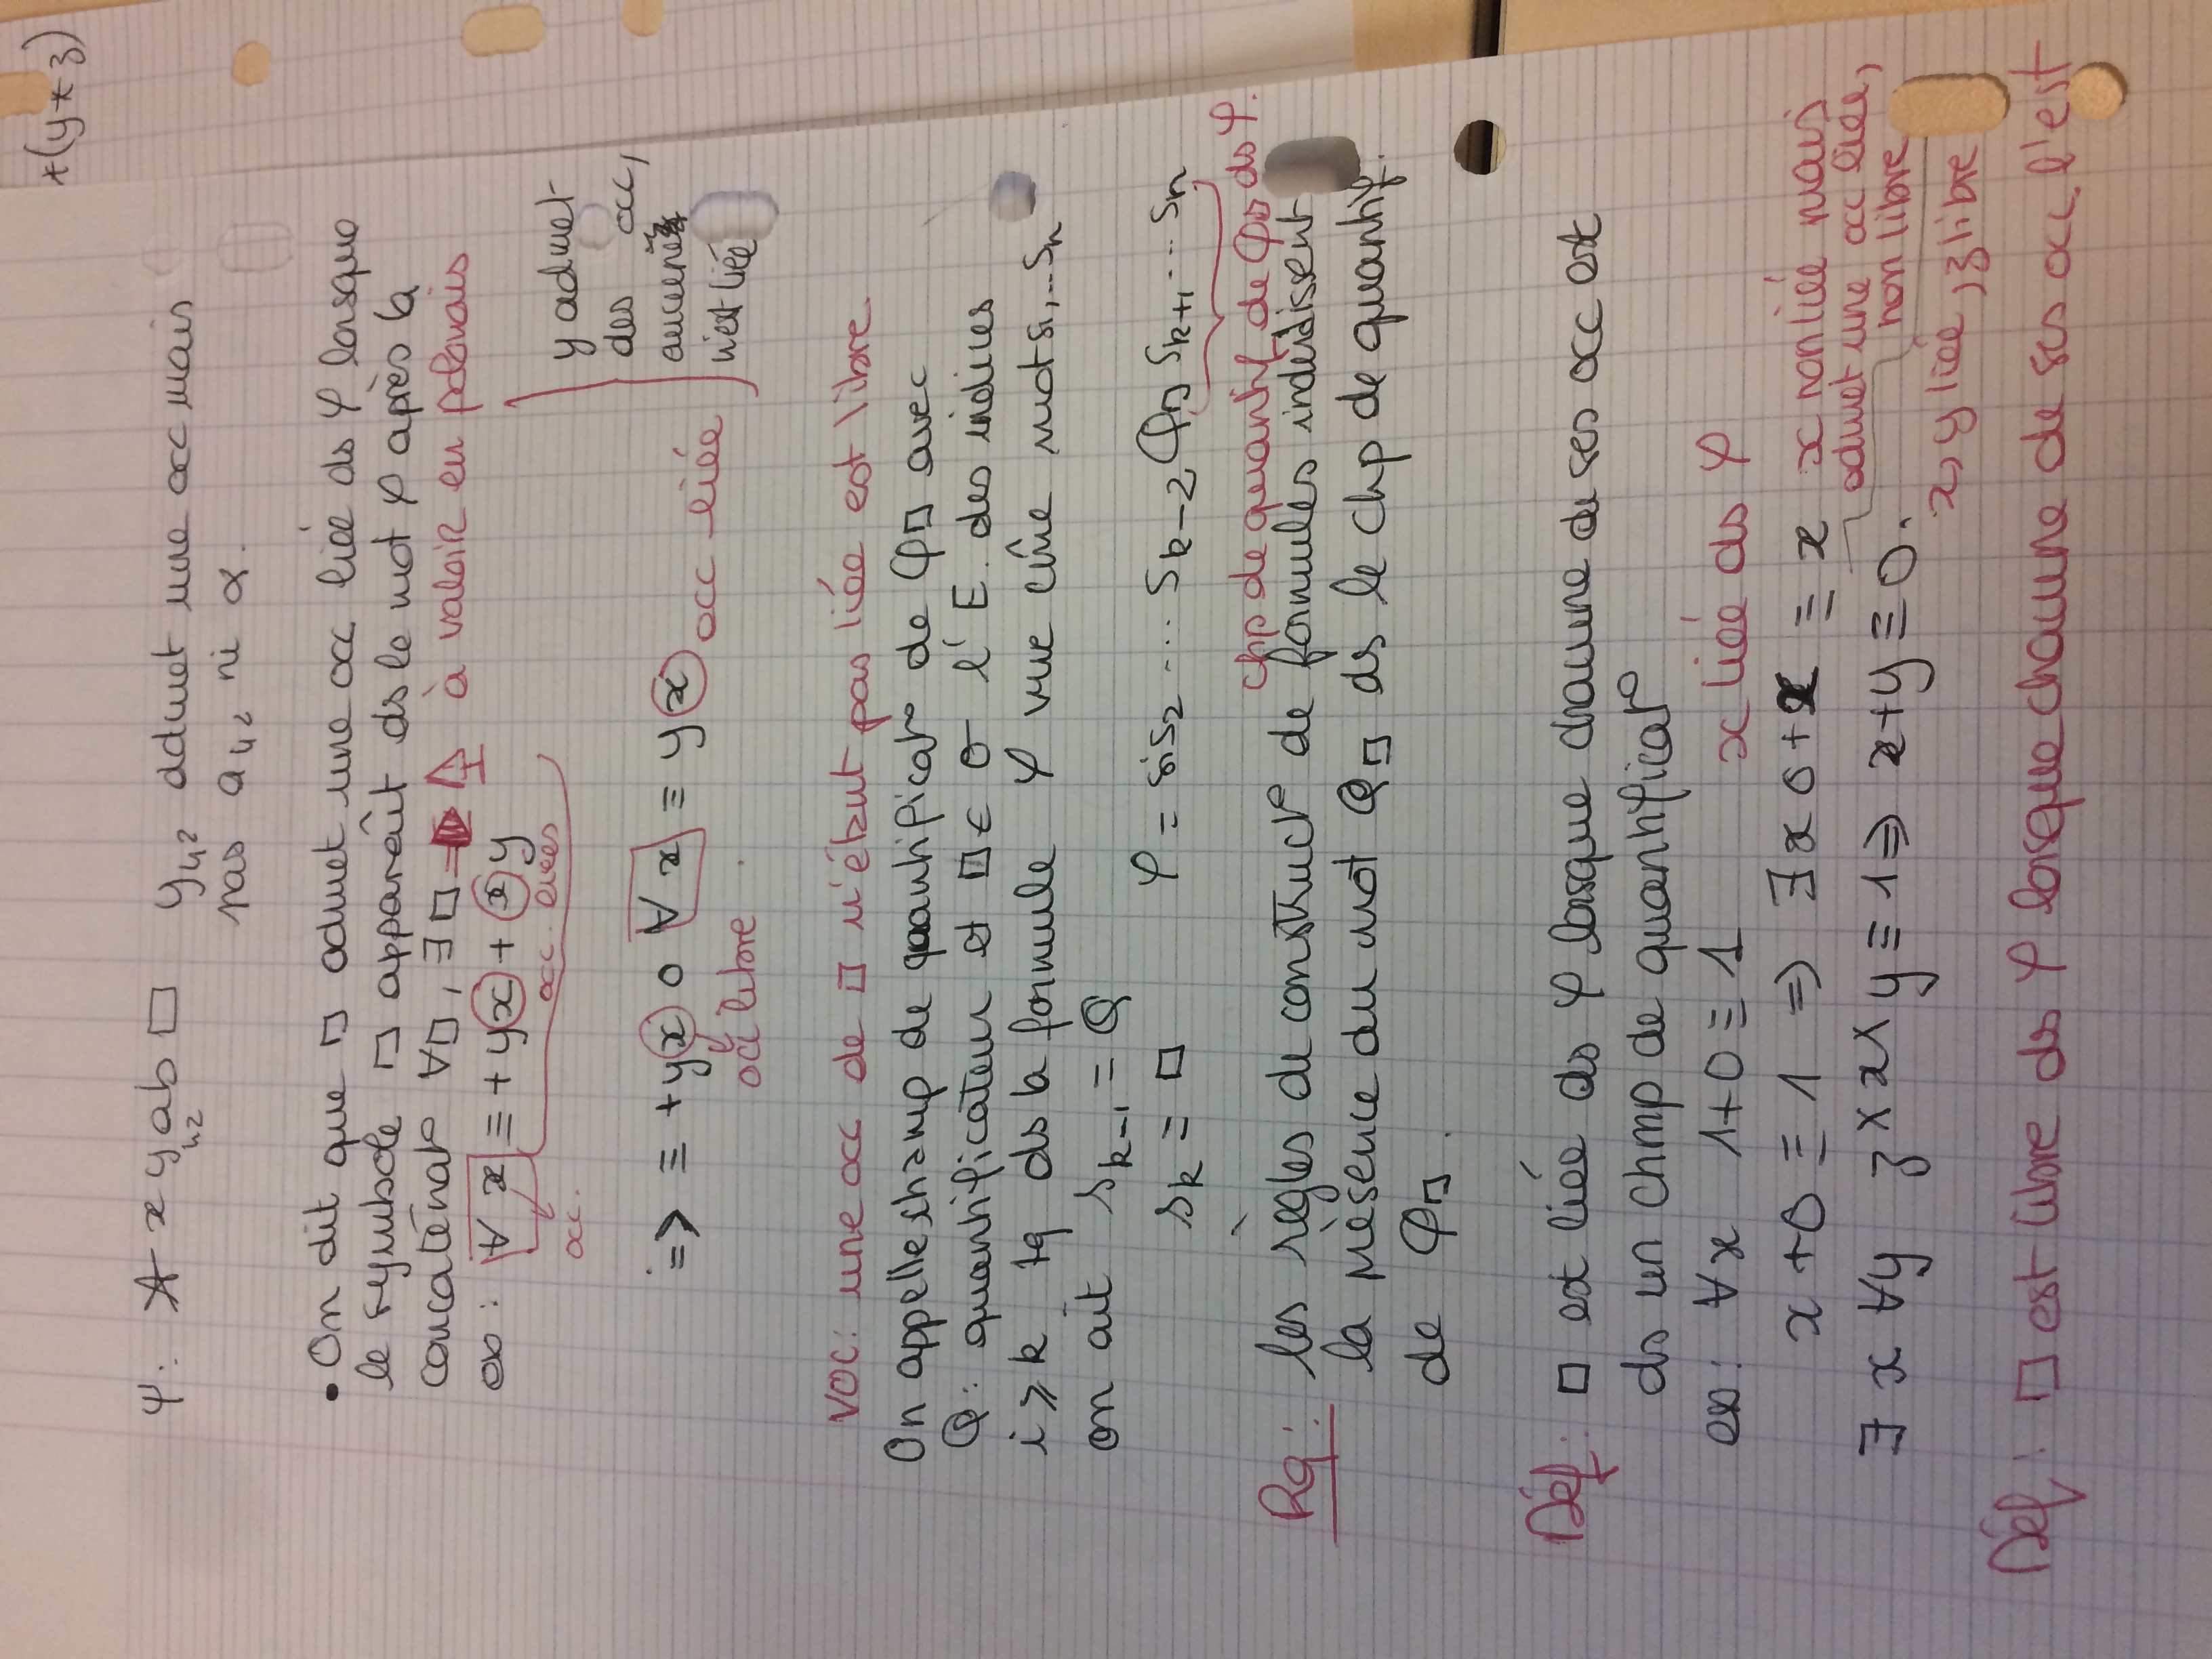 *(y*z)
Ψ: ★ x y₄₂ab□ y₄₂ admet une occ mais
pas a₄₂ ni α.
• On dit que □ admet une occ liée ds φ lorsque
le symbole □ apparaît ds le mot φ après la
concaténat° ∀□, ∃□ à valoir en polonais
ex: ∀ x ≡ + y x + x y
occ. liées
occ.
y admet
des occ,
aucune
n'est liée
=> ≡ + y x 0 ∀ x ≡ y x occ liée
occ libre
VOC: une occ de □ n'étant pas liée est libre
On appelle champ de quantificat° de Q□ avec
Q: quantificateur et □ ∈ σ l'E. des indices
i ⩾ k tq ds la formule φ vue cme mot s₁,..sₙ
on ait sₖ₋₁ = Q
sₖ = □ φ = s₁s₂ ... sₖ₋₂ Q□ sₖ₊₁ ... sₙ
chp de quantif de Q□ ds φ.
Rq: les règles de construct° de formules interdissent
la présence du mot Q□ ds le chp de quantif.
de Q□.
Déf: □ est liée ds φ lorsque chacune de ses occ est
ds un chmp de quantificat°
ex: ∀x 1+0 ≡ 1 x liée ds φ
x + 0 ≡ 1 => ∃x 0 + x ≡ x x non liée mais
admet une occ liée,
non libre
∃ x ∀y z × x × y ≡ 1 => x+y ≡ 0.
x, y liée, z libre
Déf: □ est libre ds φ lorsque chacune de ses occ. l'est